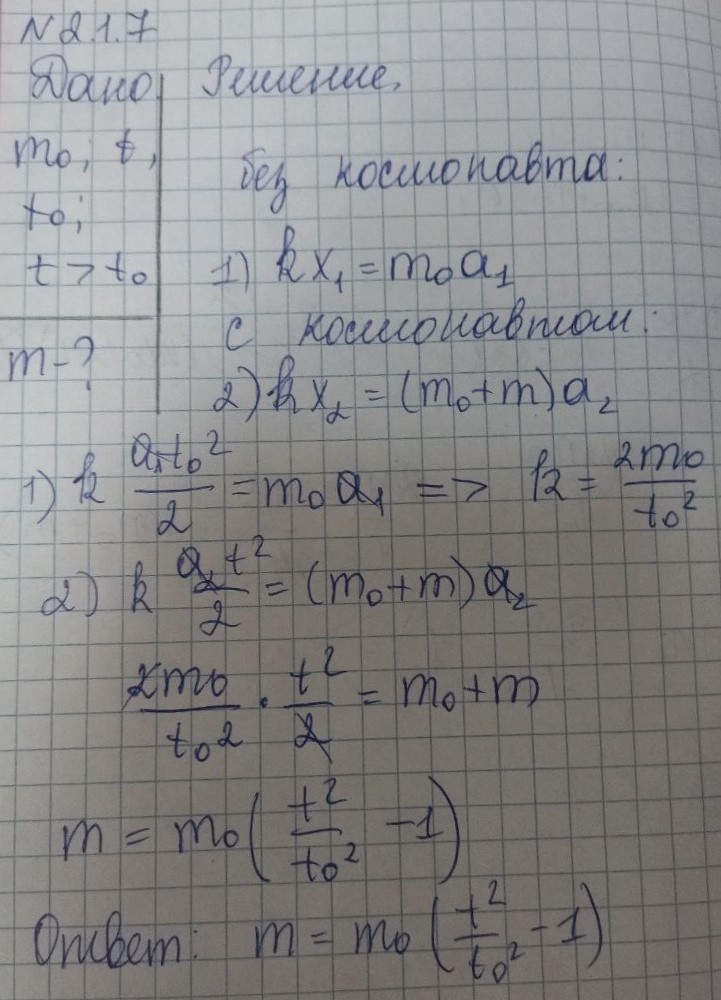 N 2.1.7
Дано Решение.
m₀; t,
t₀;
t > t₀
m - ?
без космонавта:
1) kx₁ = m₀a₁
с космонавтом:
2) kx₂ = (m₀+m)a₂
1) k a₁t₀²/2 = m₀a₁ => k = 2m₀/t₀²
2) k a₂t²/2 = (m₀+m)a₂
2m₀/t₀² · t²/2 = m₀+m
m = m₀(t²/t₀² - 1)
Ответ: m = m₀(t²/t₀² - 1)